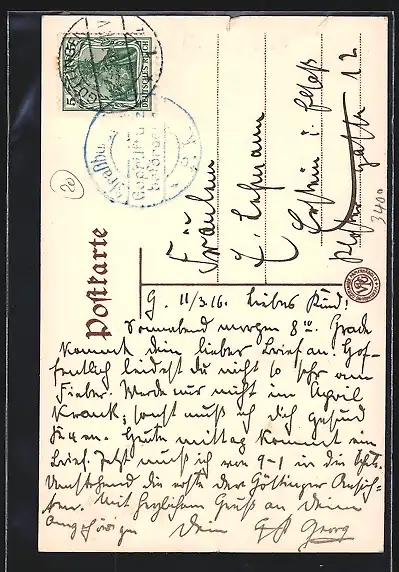 DEUTSCHES REICH
5
Postkarte
Fräulein
E. Lehmann
Erstein i. Elsaß
12
3400
20
Straßbu
Geprüft u. z
G. 11/3.16. Liebes Kind!
Sonnabend morgen 8 Grade
kommt dein lieber Brief an. Hof-
fentlich leidest du nicht so sehr am
Fieber. Werde nur nicht im April
krank, sonst muß ich dich gesund
Heute mittag kommt ein
Brief. Jetzt muß ich von 9-1 in die
Umstehend die erste der Göttinger Ansich-
ten. Mit herzlichem Gruß an deine
Angehörigen Dein Georg